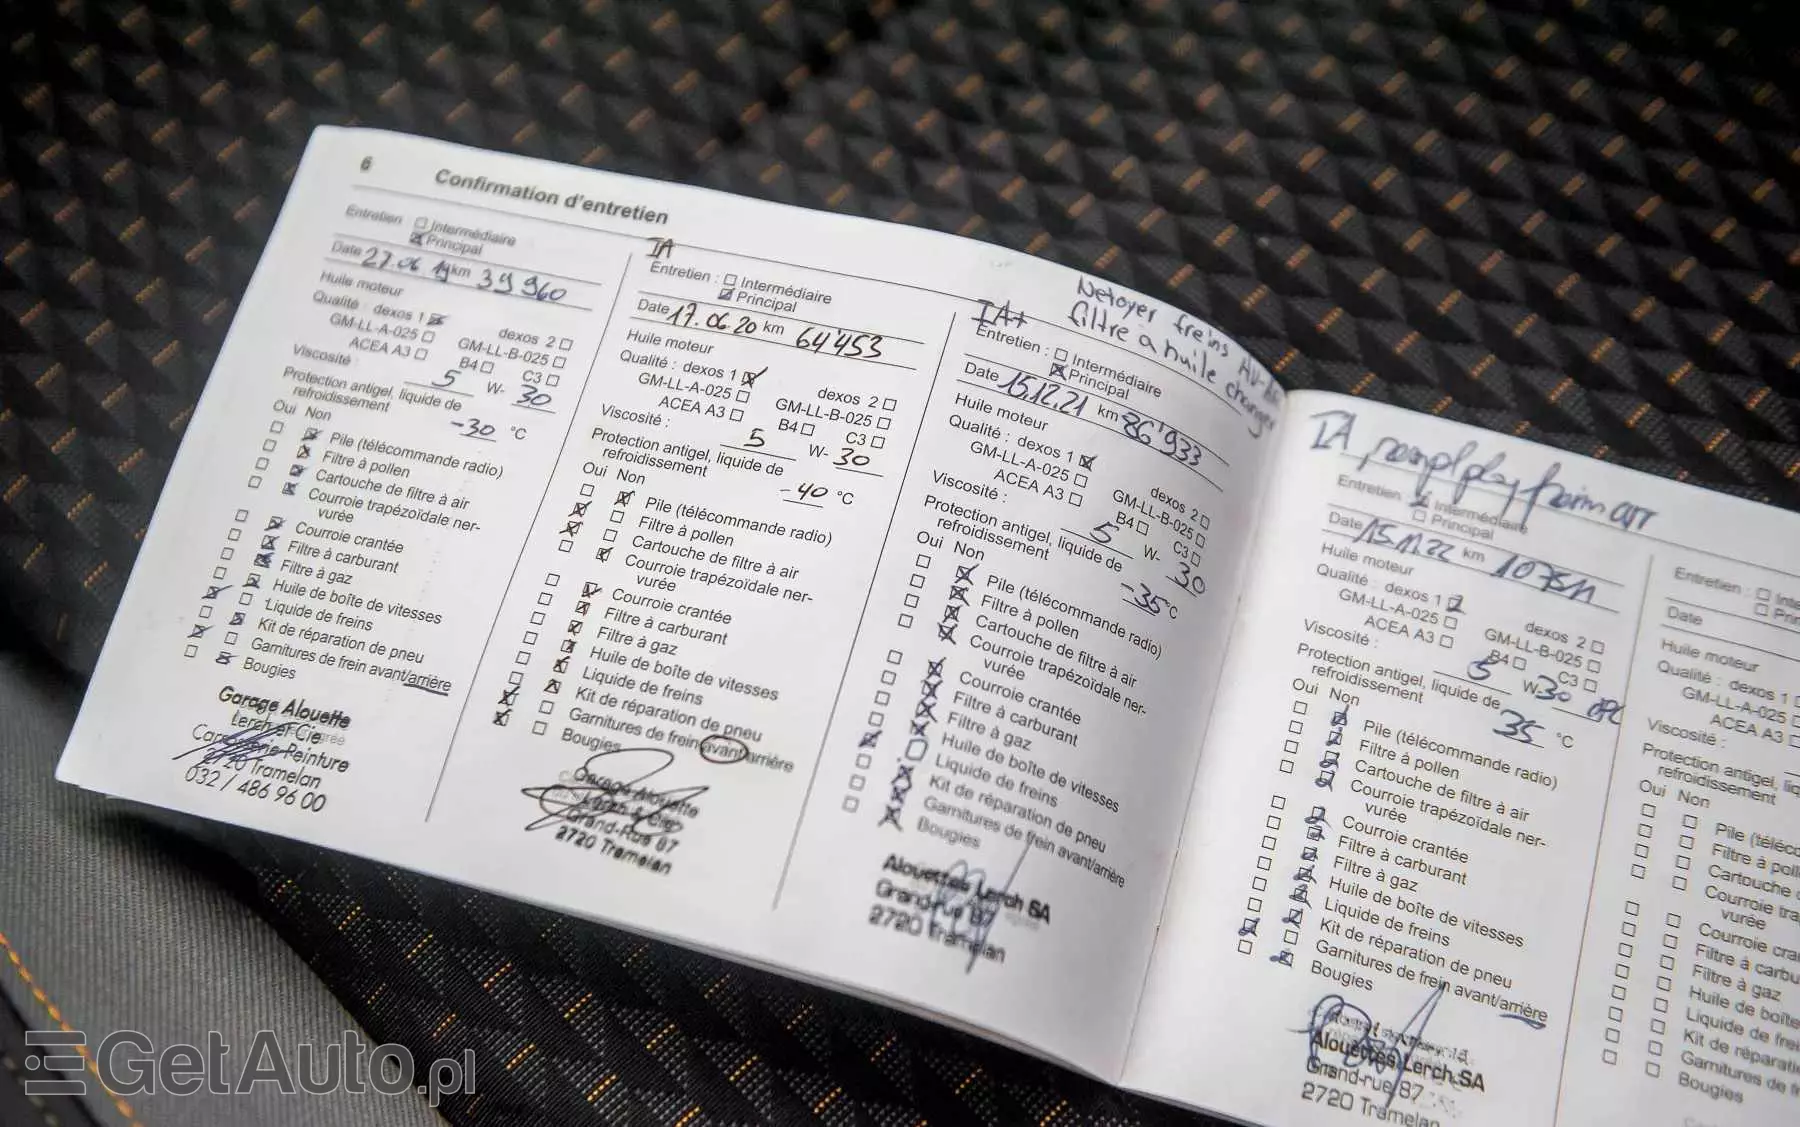 6 Confirmation d'entretien
Entretien ☐ Intermédiaire
☒ Principal
Date 27.06 19 km 39 960
Huile moteur
Qualité : dexos 1 ☒ dexos 2 ☐
GM-LL-A-025 ☐ GM-LL-B-025 ☐
ACEA A3 ☐ B4 ☐ C3 ☐
Viscosité : 5 W- 30
Protection antigel, liquide de
refroidissement -30 °C
Oui Non
Pile (télécommande radio)
Filtre à pollen
Cartouche de filtre à air
Courroie trapézoïdale ner-
vurée
Courroie crantée
Filtre à carburant
Filtre à gaz
Huile de boîte de vitesses
Liquide de freins
Kit de réparation de pneu
Garnitures de frein avant/arrière
Bougies
Garage Alouette
Lerch et Cie
Carrosserie-Peinture
2720 Tramelan
032 / 486 96 00
IA
Entretien : ☐ Intermédiaire
☒ Principal
Date 17.06.20 km 64'453
Huile moteur
Qualité : dexos 1 ☒ dexos 2 ☐
GM-LL-A-025 ☐ GM-LL-B-025 ☐
ACEA A3 ☐ B4 ☐ C3 ☐
Viscosité : 5 W- 30
Protection antigel, liquide de
refroidissement -40 °C
Oui Non
Pile (télécommande radio)
Filtre à pollen
Cartouche de filtre à air
Courroie trapézoïdale ner-
vurée
Courroie crantée
Filtre à carburant
Filtre à gaz
Huile de boîte de vitesses
Liquide de freins
Kit de réparation de pneu
Garnitures de frein avant/arrière
Bougies
Garage Alouette
Lerch & Cie
Grand-Rue 87
2720 Tramelan
Netoyer freins AV
filtre a huile changer
IA+
Entretien : ☐ Intermédiaire
☒ Principal
Date 15.12.21 km 86'933
Huile moteur
Qualité : dexos 1 ☒ dexos 2 ☐
GM-LL-A-025 ☐ GM-LL-B-025 ☐
ACEA A3 ☐ B4 ☐ C3 ☐
Viscosité : 5 W- 30
Protection antigel, liquide de
refroidissement -35 °C
Oui Non
Pile (télécommande radio)
Filtre à pollen
Cartouche de filtre à air
Courroie trapézoïdale ner-
vurée
Courroie crantée
Filtre à carburant
Filtre à gaz
Huile de boîte de vitesses
Liquide de freins
Kit de réparation de pneu
Garnitures de frein avant/arrière
Bougies
Alouettes Lerch SA
Grand-rue 87
2720 Tramelan
IA
Entretien : Intermédiaire
☐ Principal
Date 15.11.22 km 107511
Huile moteur
Qualité : dexos 1 dexos 2 ☐
GM-LL-A-025 ☐ GM-LL-B-025 ☐
ACEA A3 ☐ B4 ☐ C3 ☐
Viscosité : 5 W- 30
Protection antigel, liquide de
refroidissement 35 °C
Oui Non
Pile (télécommande radio)
Filtre à pollen
Cartouche de filtre à air
Courroie trapézoïdale ner-
vurée
Courroie crantée
Filtre à carburant
Filtre à gaz
Huile de boîte de vitesses
Liquide de freins
Kit de réparation de pneu
Garnitures de frein avant/arrière
Bougies
Alouettes Lerch SA
Grand-rue 87
2720 Tramelan
Entretien : ☐ Inte
☐ Prin
Date
Huile moteur
Qualité : dexos 1
GM-LL-A-02
ACEA A3
Viscosité :
Protection antigel, liq
refroidissement
Oui Non
Pile (téléco
Filtre à poll
Cartouche
Courroie tra
vurée
Courroie cran
Filtre à carbu
Filtre à gaz
Huile de boîte
Liquide de frei
Kit de réparatio
Garnitures de f
Bougies
GetAuto.pl